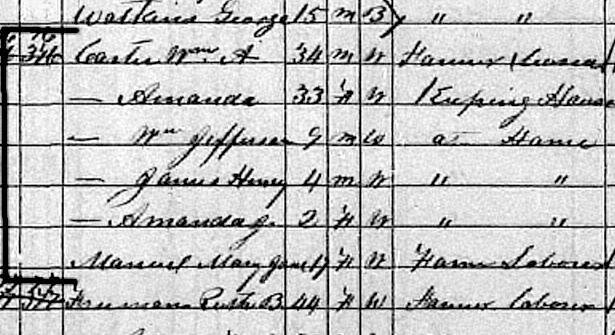 Watkins George 15 m B " "
346 Carter Wm A 34 m W Farmer
— Amanda 33 F W Keeping House
— Wm Jefferson 9 m W at Home
— James Henry 4 m W " "
— Amanda J. 2 F W " "
Manuel Mary Jane 17 F W Farm Laborer
347 Freeman B. 44 F W Farmer laborer